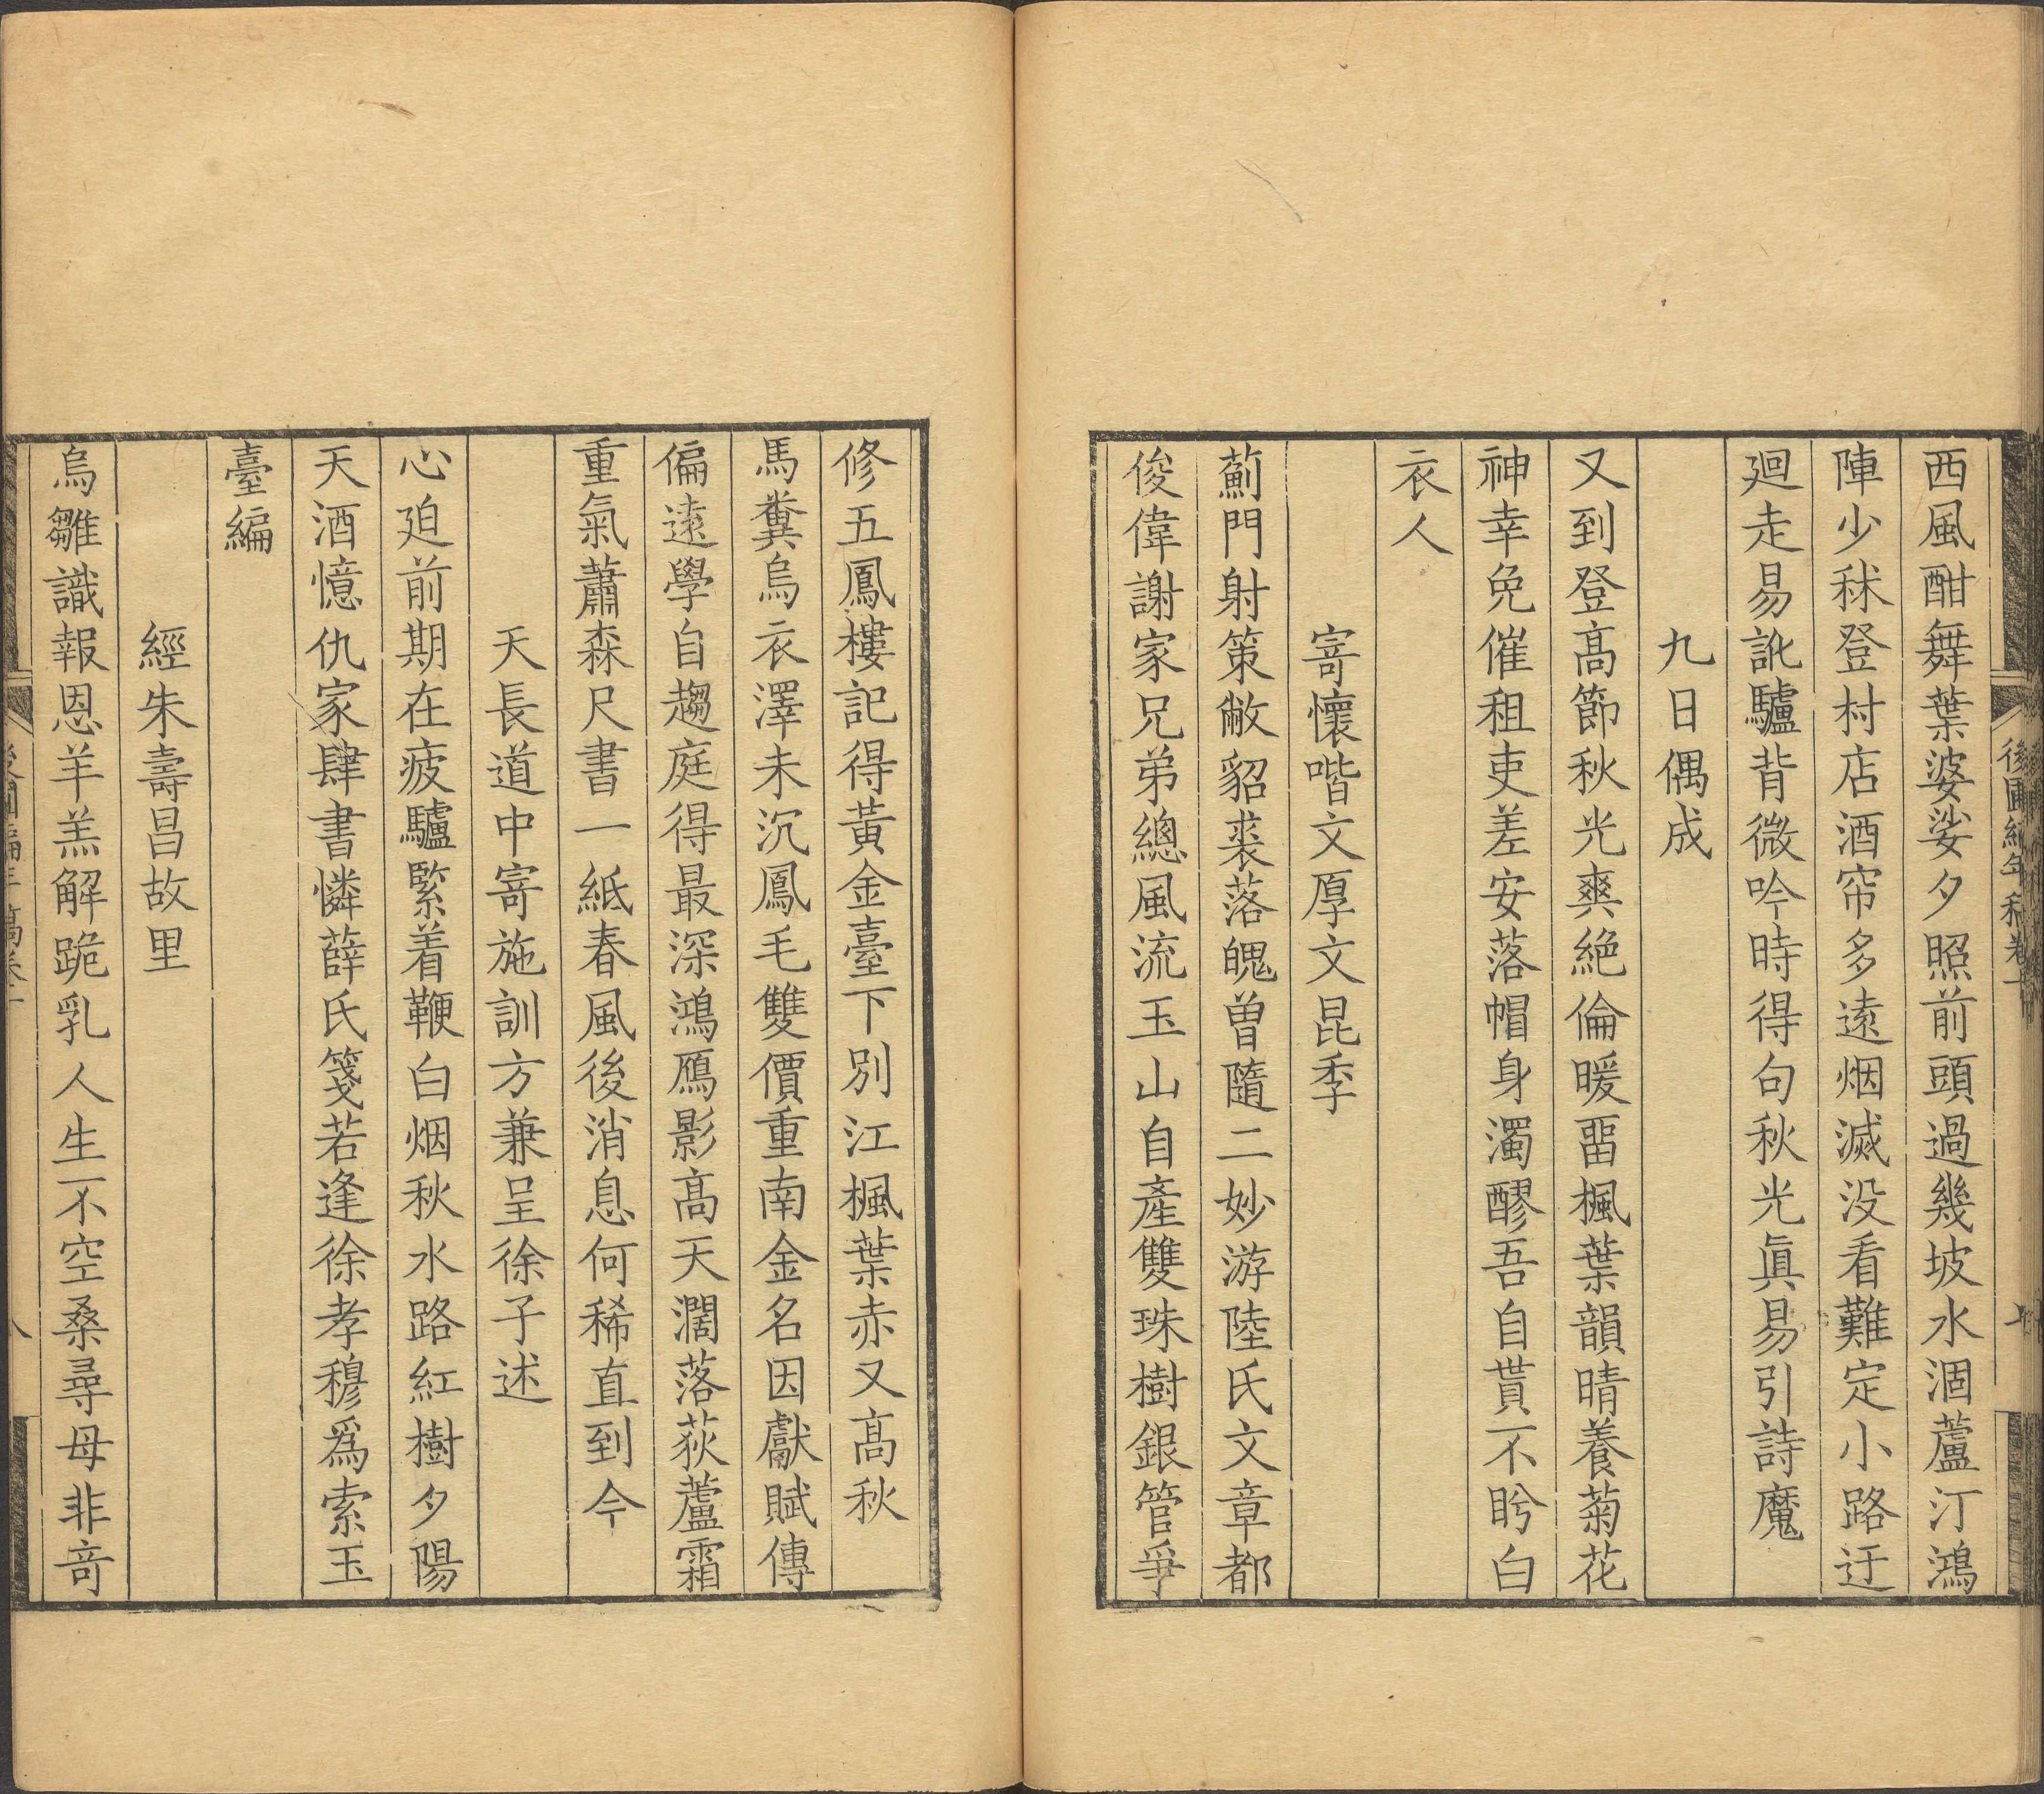 後圃編年稿卷十
七
西風酣舞葉婆娑夕照前頭過幾坡水涸蘆汀鴻
陣少秫登村店酒帘多遠烟滅没看難定小路迂
廻走易訛驢背微吟時得句秋光眞易引詩魔
九日偶成
又到登高節秋光爽絶倫暖畱楓葉韻晴養菊花
神幸免催租吏差安落帽身濁醪吾自貰不盻白
衣人
寄懷喈文厚文昆季
薊門射策敝貂裘落魄曾隨二妙游陸氏文章都
俊偉謝家兄弟總風流玉山自產雙珠樹銀管爭
修五鳳樓記得黃金臺下別江楓葉赤又高秋
馬糞烏衣澤未沉鳳毛雙價重南金名因獻賦傳
偏遠學自趨庭得最深鴻鴈影高天濶落荻蘆霜
重氣蕭森尺書一紙春風後消息何稀直到今
天長道中寄施訓方兼呈徐子述
心廹前期在疲驢緊着鞭白烟秋水路紅樹夕陽
天酒憶仇家肆書憐薛氏箋若逢徐孝穆爲索玉
臺編
經朱壽昌故里
烏雛識報恩羊羔解跪乳人生不空桑尋母非竒
八